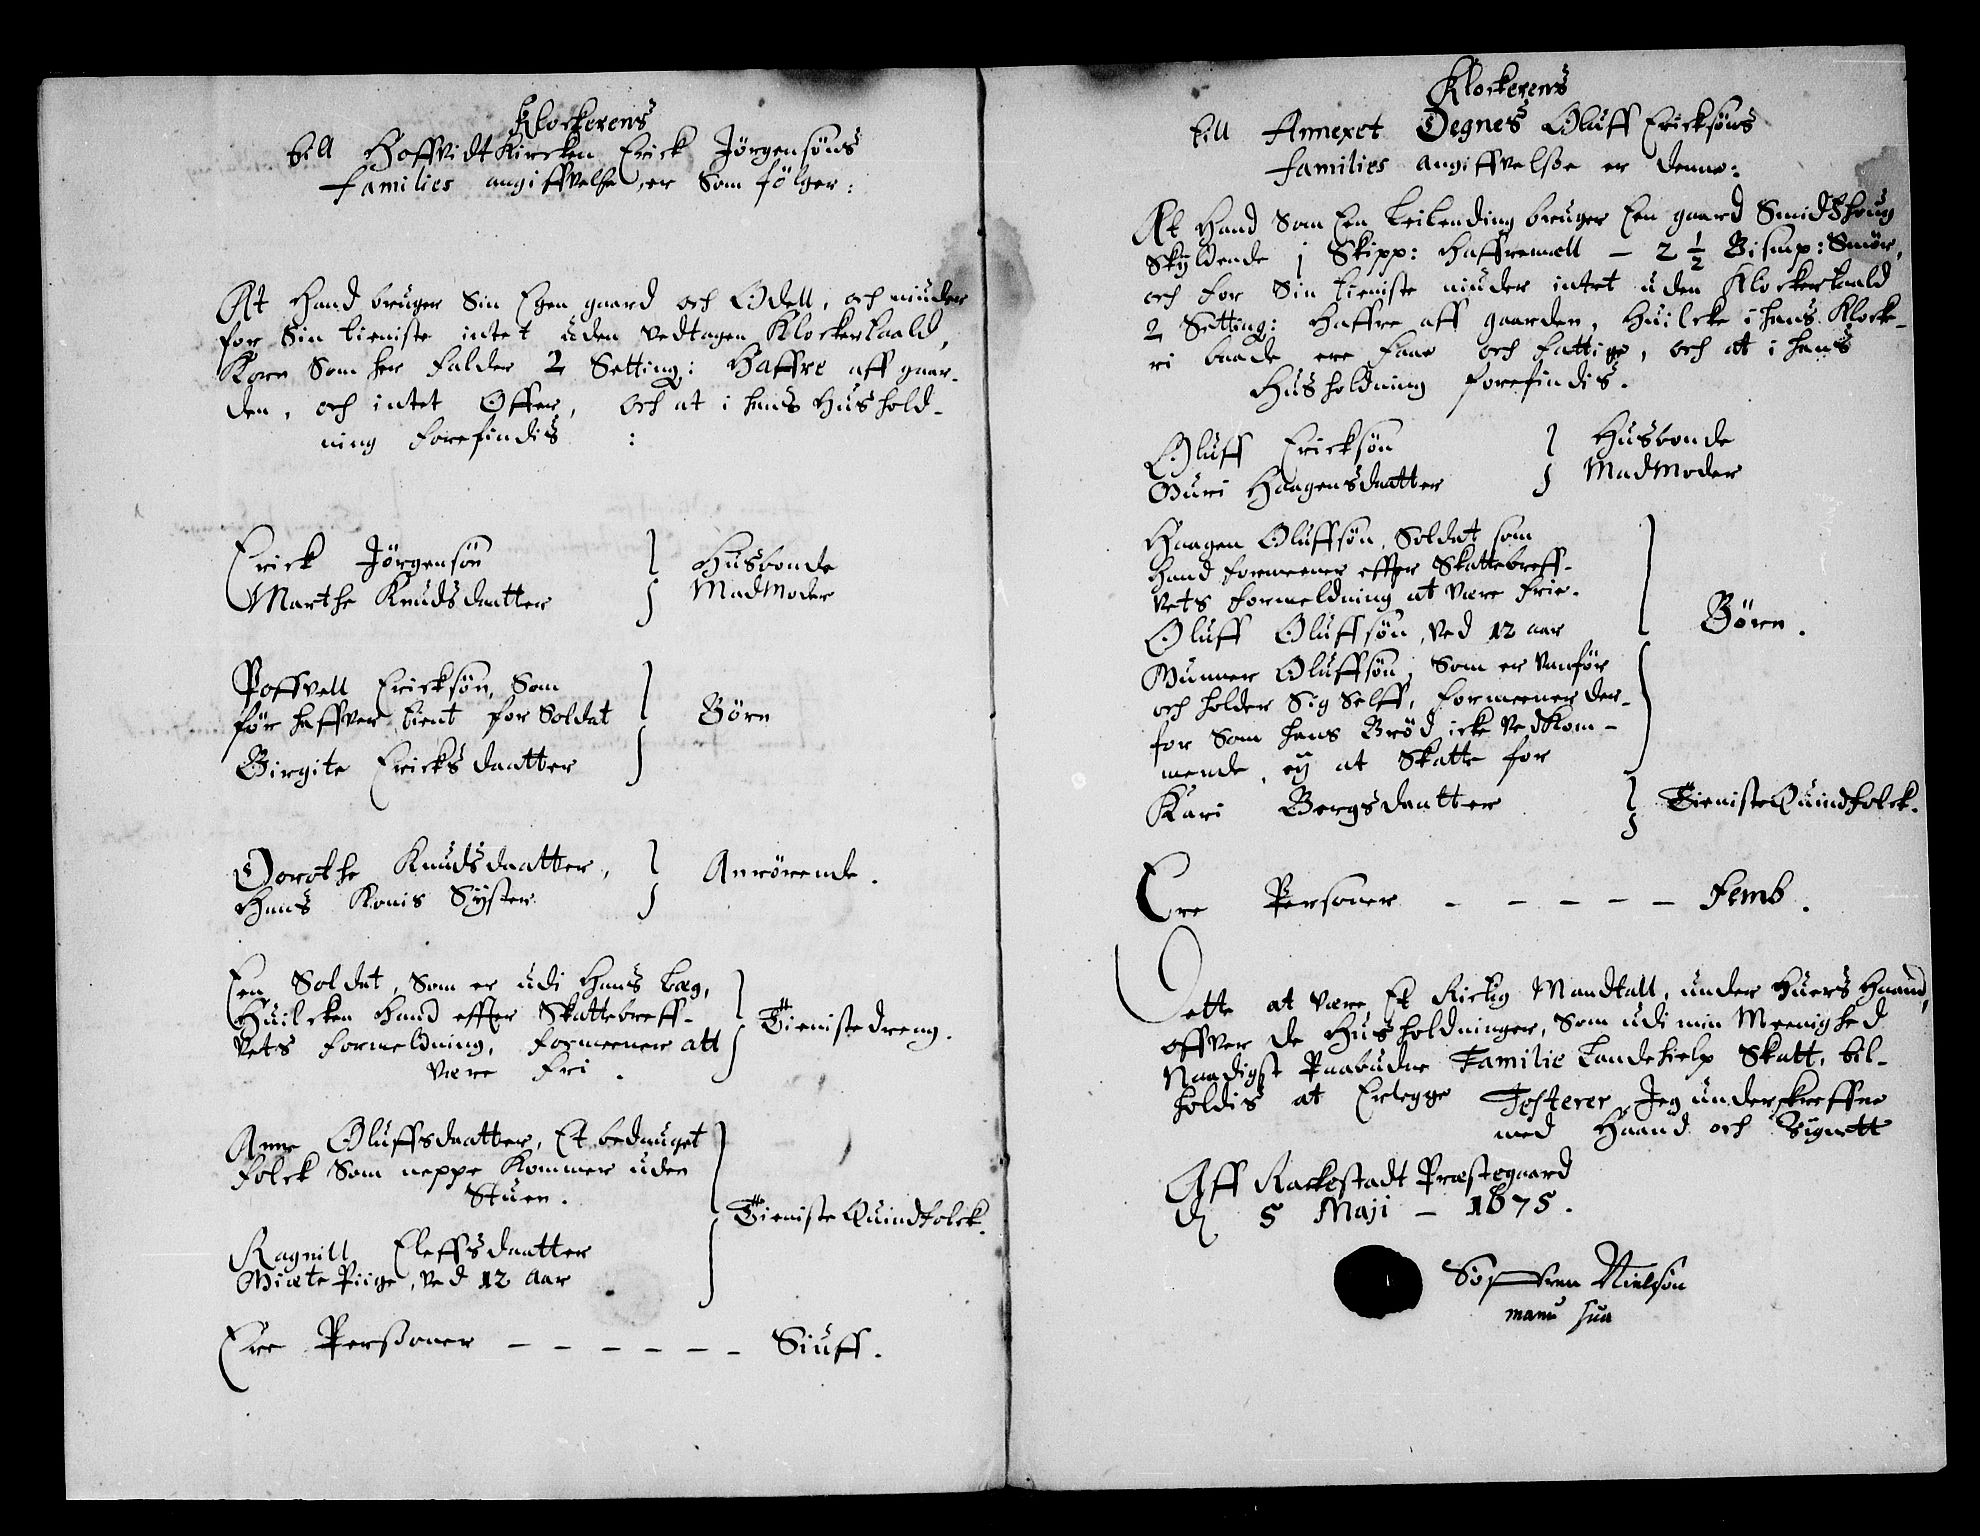 Klockerens
till HoffvidtKircken Erick Jörgensöns
Families angiffvelse, er Som fölger:
At Hand bruger Sin Egen gaard och Odell, och niuder
for Sin tieniste intet uden vedtagen Klockertaald,
Korn Som her falder 2 Setting: Haffre aff gaar-
den, och intet Offer, och at i hans Hushold-
ning forefindis :
Erick Jörgensön } Husbonde
Marthe Knudsdaatter } MadModer
Poffvell Ericksön, Som
för haffver tient for Soldat } Börn
Birgite Ericksdaatter
Dorothe Knudsdaatter, } Anrörende.
Hans Konis Syster
En Soldat, Som er udi Hans Læg,
Huilcken Hand effter Skattebreff- } Tienistedreng.
vets formeldning, formeener att
være fri.
Anne Oluffsdaatter, Et bedauget
folck Som neppe Kommer uden
Stuen. } TienisteQuindfolck.
Ragnill Eleffsdaatter
Miæte Piige, ved 12 Aar
Ere Personer - - - - - - Siuff.
Klockerens
till Annexet Degnes Oluff Ericksöns
families angiffvelsse er denne:
At Hand Som En Leilending bruger Een gaard Smidshoug
Skyldende j Skipp: Haffremell - 2 1/2 Bismp: Smör,
och for Sin tieniste niuder intet uden Klockertaald
2 Setting: Haffre aff gaarden, Huilcke i hans Klocke-
ri baade ere faae och fattige, och at i hans
Husholdning forefindis.
Oluff Ericksön } Husbonde
Guri Haagensdaatter } MadModer
Haagen Oluffsön, Soldat som
Hand formeener effter Skattebreff-
vets formeldning at være frie.
Oluff Oluffsön, ved 12 aar } Börn.
Gunner Oluffsön, Som er vanför
och holder Sig Selff, formeener der-
for Som hans Bröd icke vedkom-
mende, ey at Skatte for
Kari Bergsdaatter } TienisteQuindfolck.
Ere Personer - - - - - Femb.
Dette at være Et Rictig Mandtall, under Huers Haand,
offver de Husholdninger, Som udi min Meenighed
Naadigst Paabudne Familie Landehielp Skatt, til-
holdis at Erlegge Testerer Jeg underskreffne
med Haand och Signett
Aff Rackestadt Præstegaard
d 5 Maji - 1675.
Söffren Nielsön
manu sua